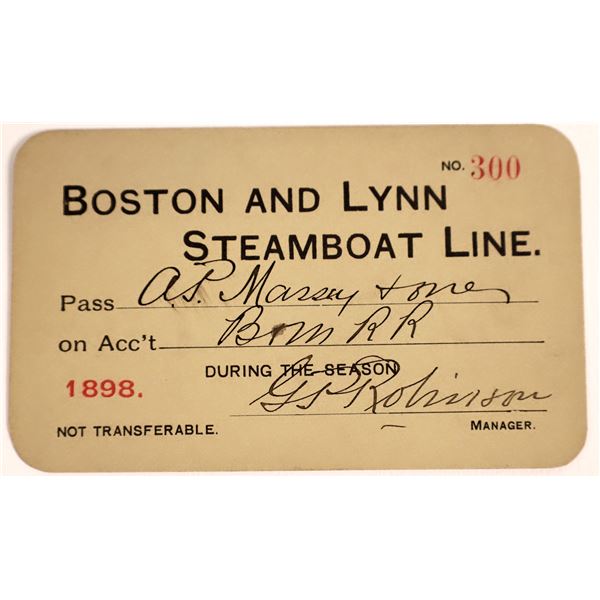 NO. 300
BOSTON AND LYNN
STEAMBOAT LINE.
Pass A.P. Massey & one
on Acc't B & M R R
DURING THE SEASON
1898.
G P Robinson
NOT TRANSFERABLE.
MANAGER.